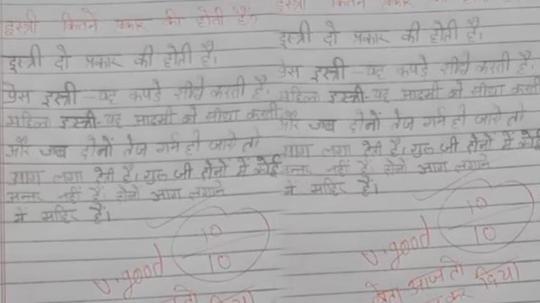 इस्त्री कितने प्रकार की होती है?
इस्त्री दो प्रकार की होती है।
प्रेस इस्त्री - यह कपडे सीधे करती है.
महिला इस्त्री - यह आदमी को सीधा करती
और जब दोनों तेज गर्म हो जाये तो
आग लगा देती है। गुरु जी दोनों में कोई
अन्तर नहीं है, दोनों आग लगाने
में माहिर हैं।
v. good
10
10
इस्त्री दो प्रकार की होती है।
प्रेस इस्त्री - यह कपडे सीधे करती है.
महिला इस्त्री - यह आदमी को सीधा करती
और जब दोनों तेज गर्म हो जाये तो
आग लगा देती है। गुरु जी दोनों में कोई
अन्तर नहीं है, दोनों आग लगाने
में माहिर हैं।
v. good
10
10
बेटा आज तो
दिया